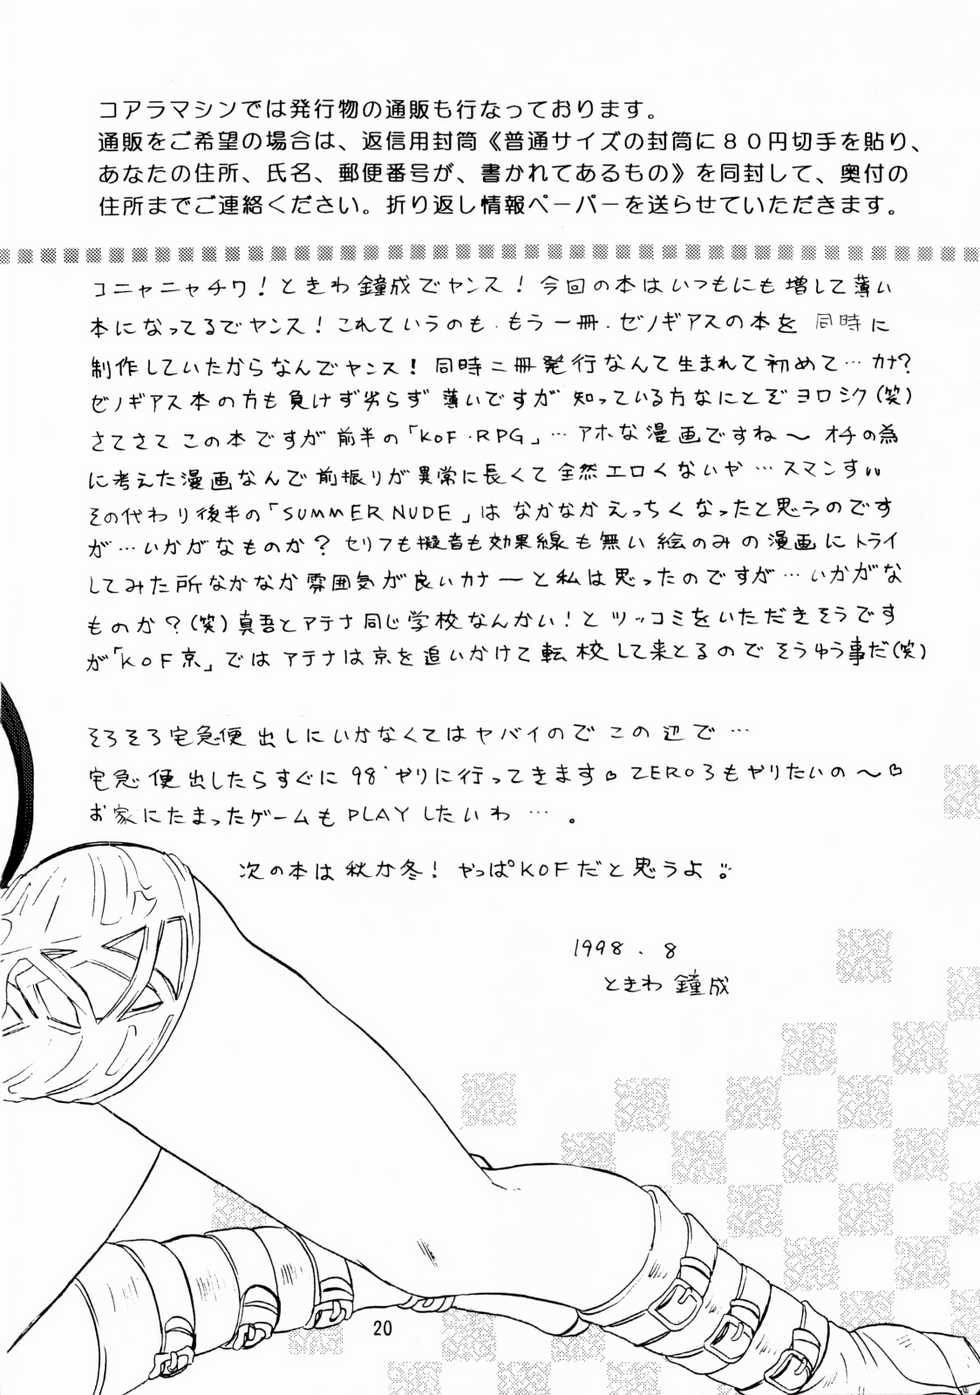 コアラマシンでは発行物の通販も行なっております。
通販をご希望の場合は、返信用封筒《普通サイズの封筒に８０円切手を貼り、
あなたの住所、氏名、郵便番号が、書かれてあるもの》を同封して、奥付の
住所までご連絡ください。折り返し情報ペーパーを送らせていただきます。
コニャニャチワ！ときわ鐘成でヤンス！今回の本はいつもにも増して薄い
本になってるでヤンス！これていうのも、もう一冊、ゼノギアスの本を同時に
制作していたからなんでヤンス！同時二冊発行なんて生まれて初めて…カナ？
ゼノギアス本の方も負けず劣らず薄いですが知っている方なにとぞヨロシク(笑)
さてさてこの本ですが前半の「KOF・RPG」…アホな漫画ですね〜オチの為
に考えた漫画なんで前振りが異常に長くて全然エロくないや…スマンす
その代わり後半の「SUMMER NUDE」はなかなかえっちくなったと思うのです
が…いかがなものか？セリフも擬音も効果線も無い絵のみの漫画にトライ
してみた所なかなか雰囲気が良いカナーと私は思ったのですが…いかがな
ものか？(笑)真吾とアテナ同じ学校なんかい！とツッコミをいただきそうです
が「KOF京」ではアテナは京を追いかけて転校して来とるのでそうゆう事だ(笑)
そろそろ宅急便出しにいかなくてはヤバイのでこの辺で…
宅急便出したらすぐに98'やりに行ってきます♡ZERO3もやりたいの〜♡
お家にたまったゲームもPLAYしたいわ…。
次の本は秋か冬！やっぱKOFだと思うよ
1998.8
ときわ鐘成
20